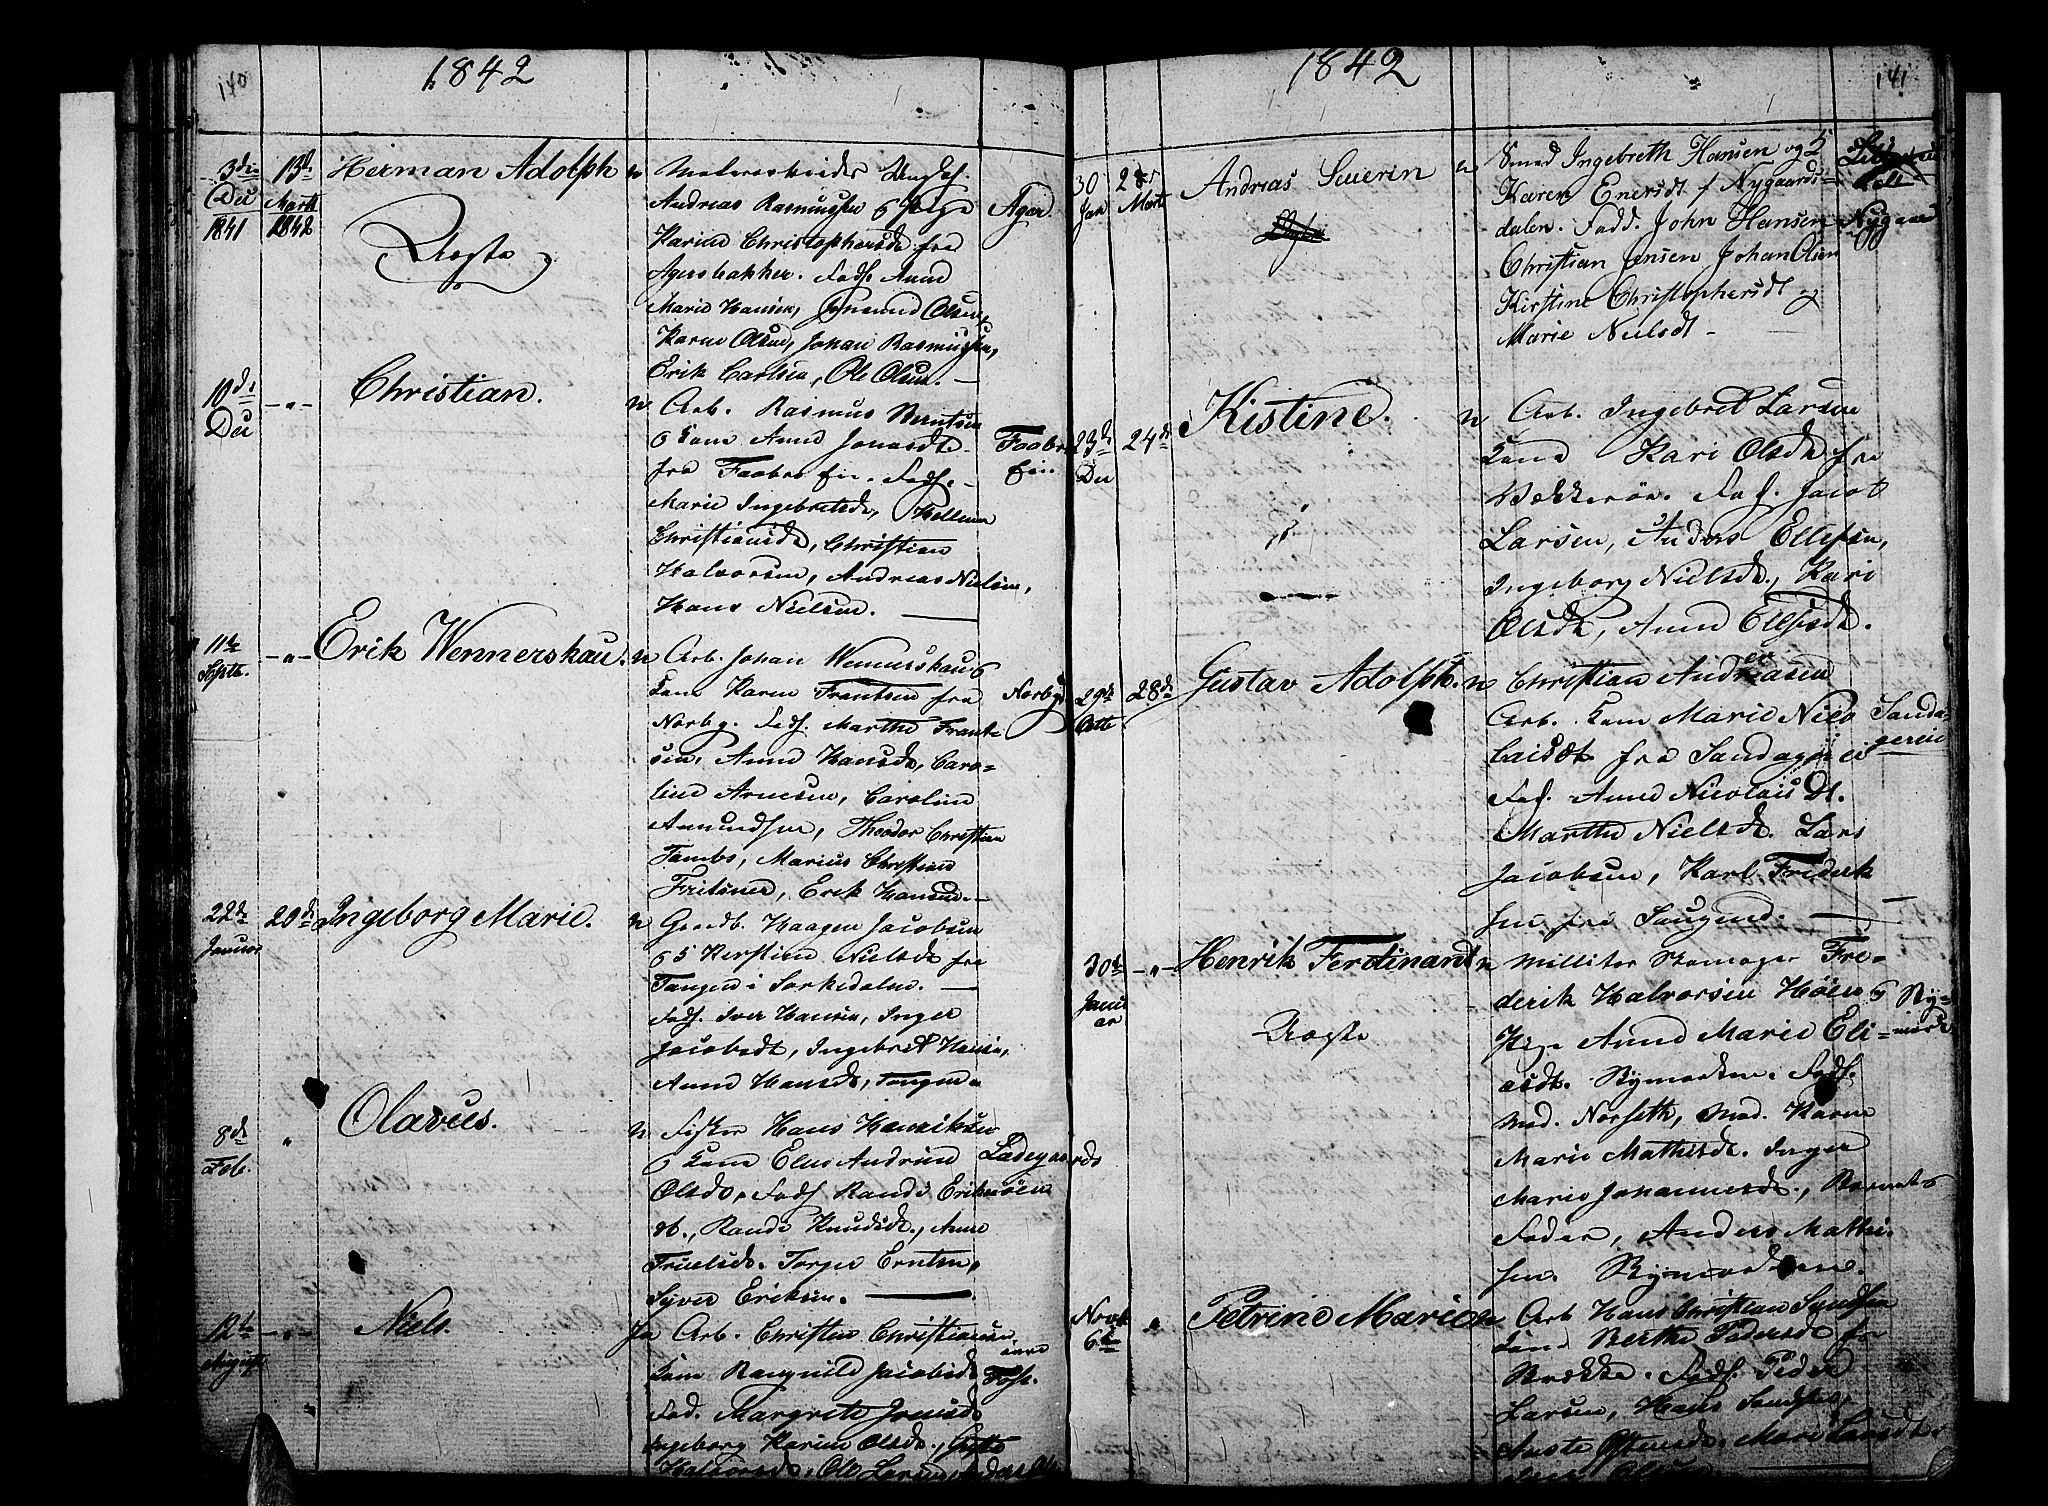 140
1842
3die Dec 1841
13d Marts 1842
Herman Adolph
Uægte
n
Andreas Rasmussen
Karine Christophersdt fra
Agersbakken. Fadd. Anne
Marie Hansen, Osmund Olsen,
Karen Olsen, Johan Rasmussen,
Erik Carlsen, Ole Olsen.
Ager
10de Dec
Christian.
n
Arb. Rasmus Berntsen
Kone Anne Jonasdt
fra Faabro Eie. Fadd.
Marie Ingebretsdt, Hellene
Christiansdt, Christian
Halvorsen, Andreas Nielsen,
Hans Nielsen.
Faabro
Eie
11te Septe.
Erik Wennerskau.
n
Arb. Johan Wennerskau
Kone Karen Frantsen fra
Norbyg. Fadd. Marthe Frant-
sen, Anne Hansdt, Caro-
line Arnesen, Caroline
Amundsen, Theodor Christian
Tambs, Marius Christian
Fritzner, Erik Hansen.
Norbyg
22de Januar
20de
Ingeborg Marie.
n
Gaardb. Haagen Jacobsen
Kerstine Nielsdt fra
Tangen i Sørkedalen.
Fadd. Iver Hansen, Inger
Jacobsdt, Ingebret Hansen,
Anne Hansdt, Tangen
8de Feb.
Olavus.
n
Fisker Hans Henriksen
Kone Else Andrine
Olsdt, Fadd. Randi Eriks-
dt., Rande Knudsdt., Anne
Truelsdt. Torger Erntsen,
Syver Eriksen.
Ladegaards
øen
12te August
Niels.
Ja
Arb. Christen Christiansen
Kone Rangnild Jacobsdt
Fad. Margrete Jensdt
Ingeborg Karine Olsdt.,
Halvorsdt, Ole Larsen
141
1842
30 Jan
28de Marts
Andreas Severin
n
Smed Ingebreth Hansen og
Karen Enersdt f Nygaards-
dalen. Fadd. John Hansen
Christian Jensen Johan Olsen
Kirstine Christophersdt og
Marie Nielsdt
Nygaard
23de Dec
24de
Kistine.
n
Arb. Ingebret Larsen
Kone Kari Olsdt fra
Bækkerøe. Fad. Jacob
Larsen, Anders Ellefsen,
Ingeborg Nielsdt., Kari
Olsdt, Anne Ellefsdt.
29de Octb
28de
Gustav Adolph.
n
Christian Andreasen
Arb. Kone Marie Nico
laisdt fra Sandagereie
Fad. Anne Nicolaisdt.
Marthe Nielsdt. Lars
Jacobsen, Karl Friderk
sen fra Saugene.
Sanda-
gereie
30te Janu ar
Henrik Ferdinand
Uægte
n
Militer Skomager Fre-
derik Halvorsen Høier
Pige Anne Marie Eli-
asdt. Bymarken. Fadd.
Mad. Norseth, Mad. Karen
Marie Mathisdt. Inger
Marie Johannesdt., Barnets
Fader, Anders Mathi-
sen. Bymarken.
By-
mark
Novb 6te
Petrine Marie
n
Arb Hans Christian
Kone Berthe Pedersdt fra
Brække. Fadd. Peder
Larsen, Hans
Mari Larsdt